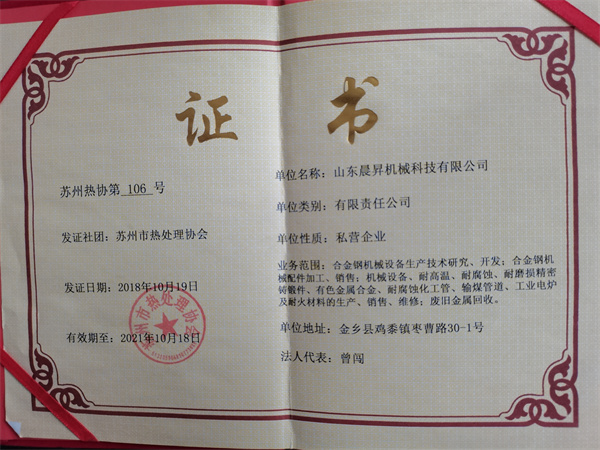 证书
苏州热协第 106 号
发证社团：苏州市热处理协会
发证日期：2018年10月19日
有效期至：2021年10月18日
苏州市热处理协会
单位名称：山东晨昇机械科技有限公司
单位类别：有限责任公司
单位性质：私营企业
业务范围：合金钢机械设备生产技术研究、开发；合金钢机
械配件加工、销售；机械设备、耐高温、耐腐蚀、耐磨损精密
铸锻件、有色金属合金、耐腐蚀化工管、输煤管道、工业电炉
及耐火材料的生产、销售、维修；废旧金属回收。
单位地址：金乡县鸡黍镇枣曹路30-1号
法人代表：曾闯